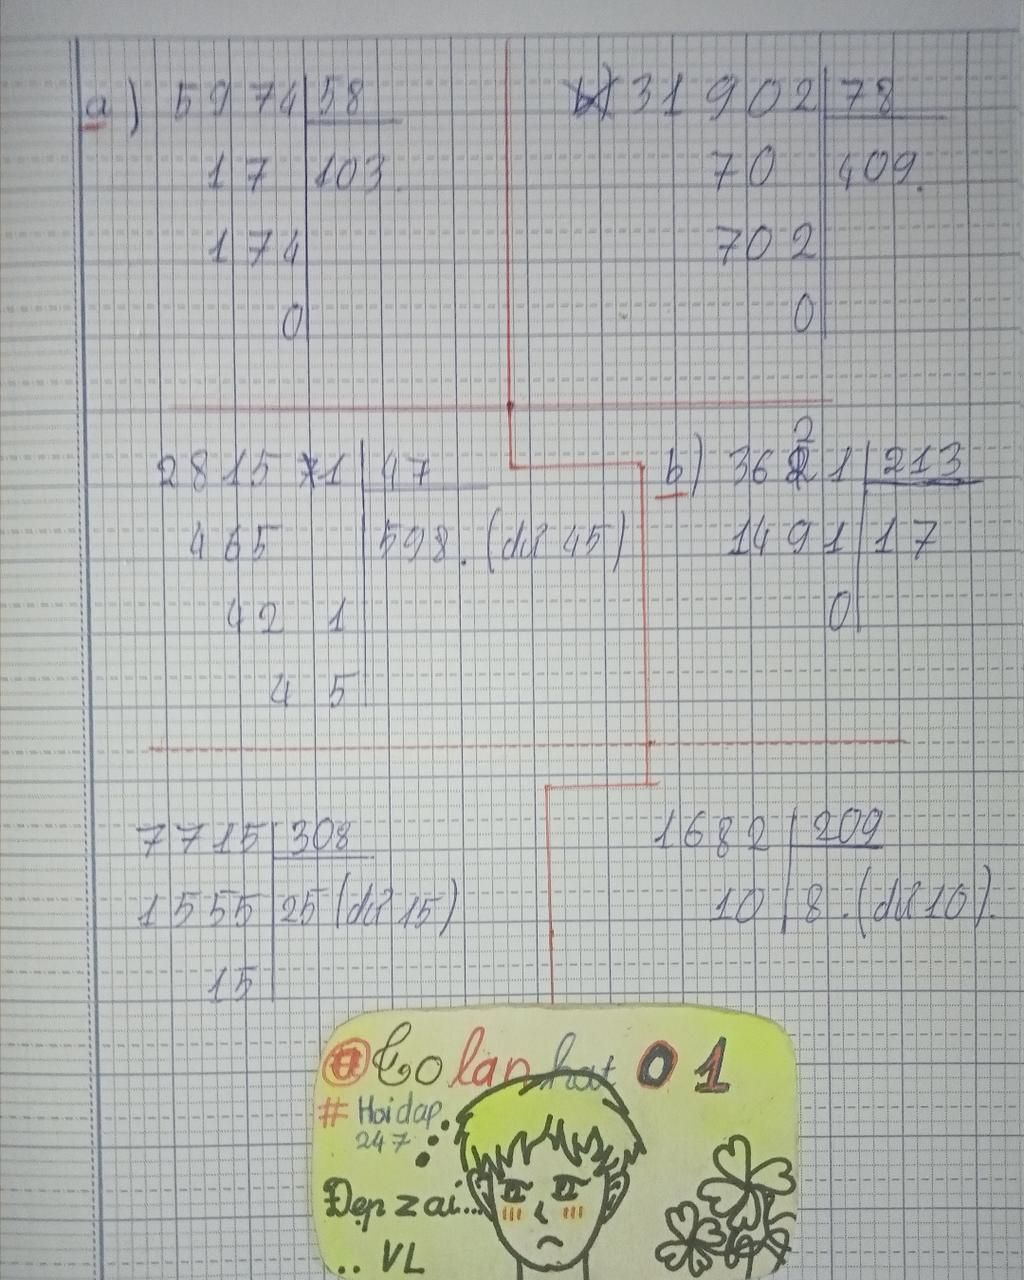 a) 5974 58
17 103.
174
0
31902 78
70 409.
702
0
28151 47
465 598. (dư 45)
421
45
b) 3621 213
1491 17
0
7715 308
1555 25 (dư 15)
15
1682 209
10 8. (dư 10).
01
# Hoidap
247
Đẹp zai...
.. VL